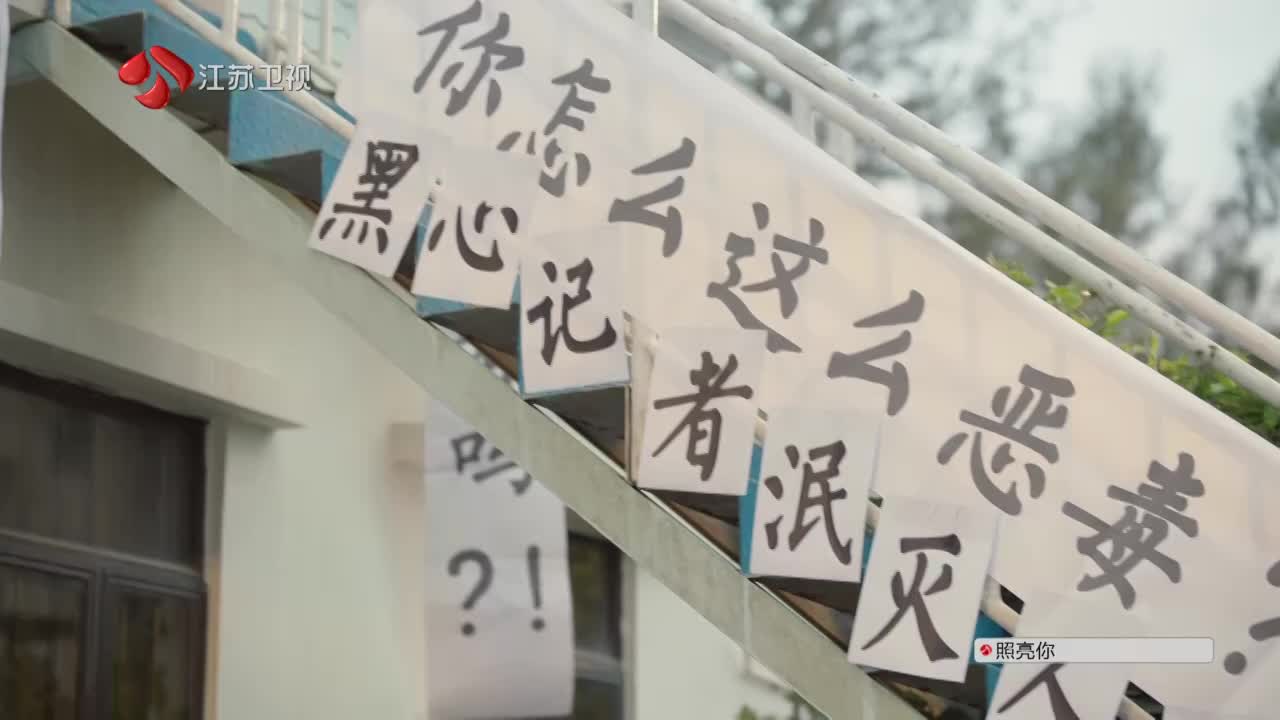 江苏卫视
你怎么这么恶毒？
黑心记者泯灭人
吗
?!
照亮你